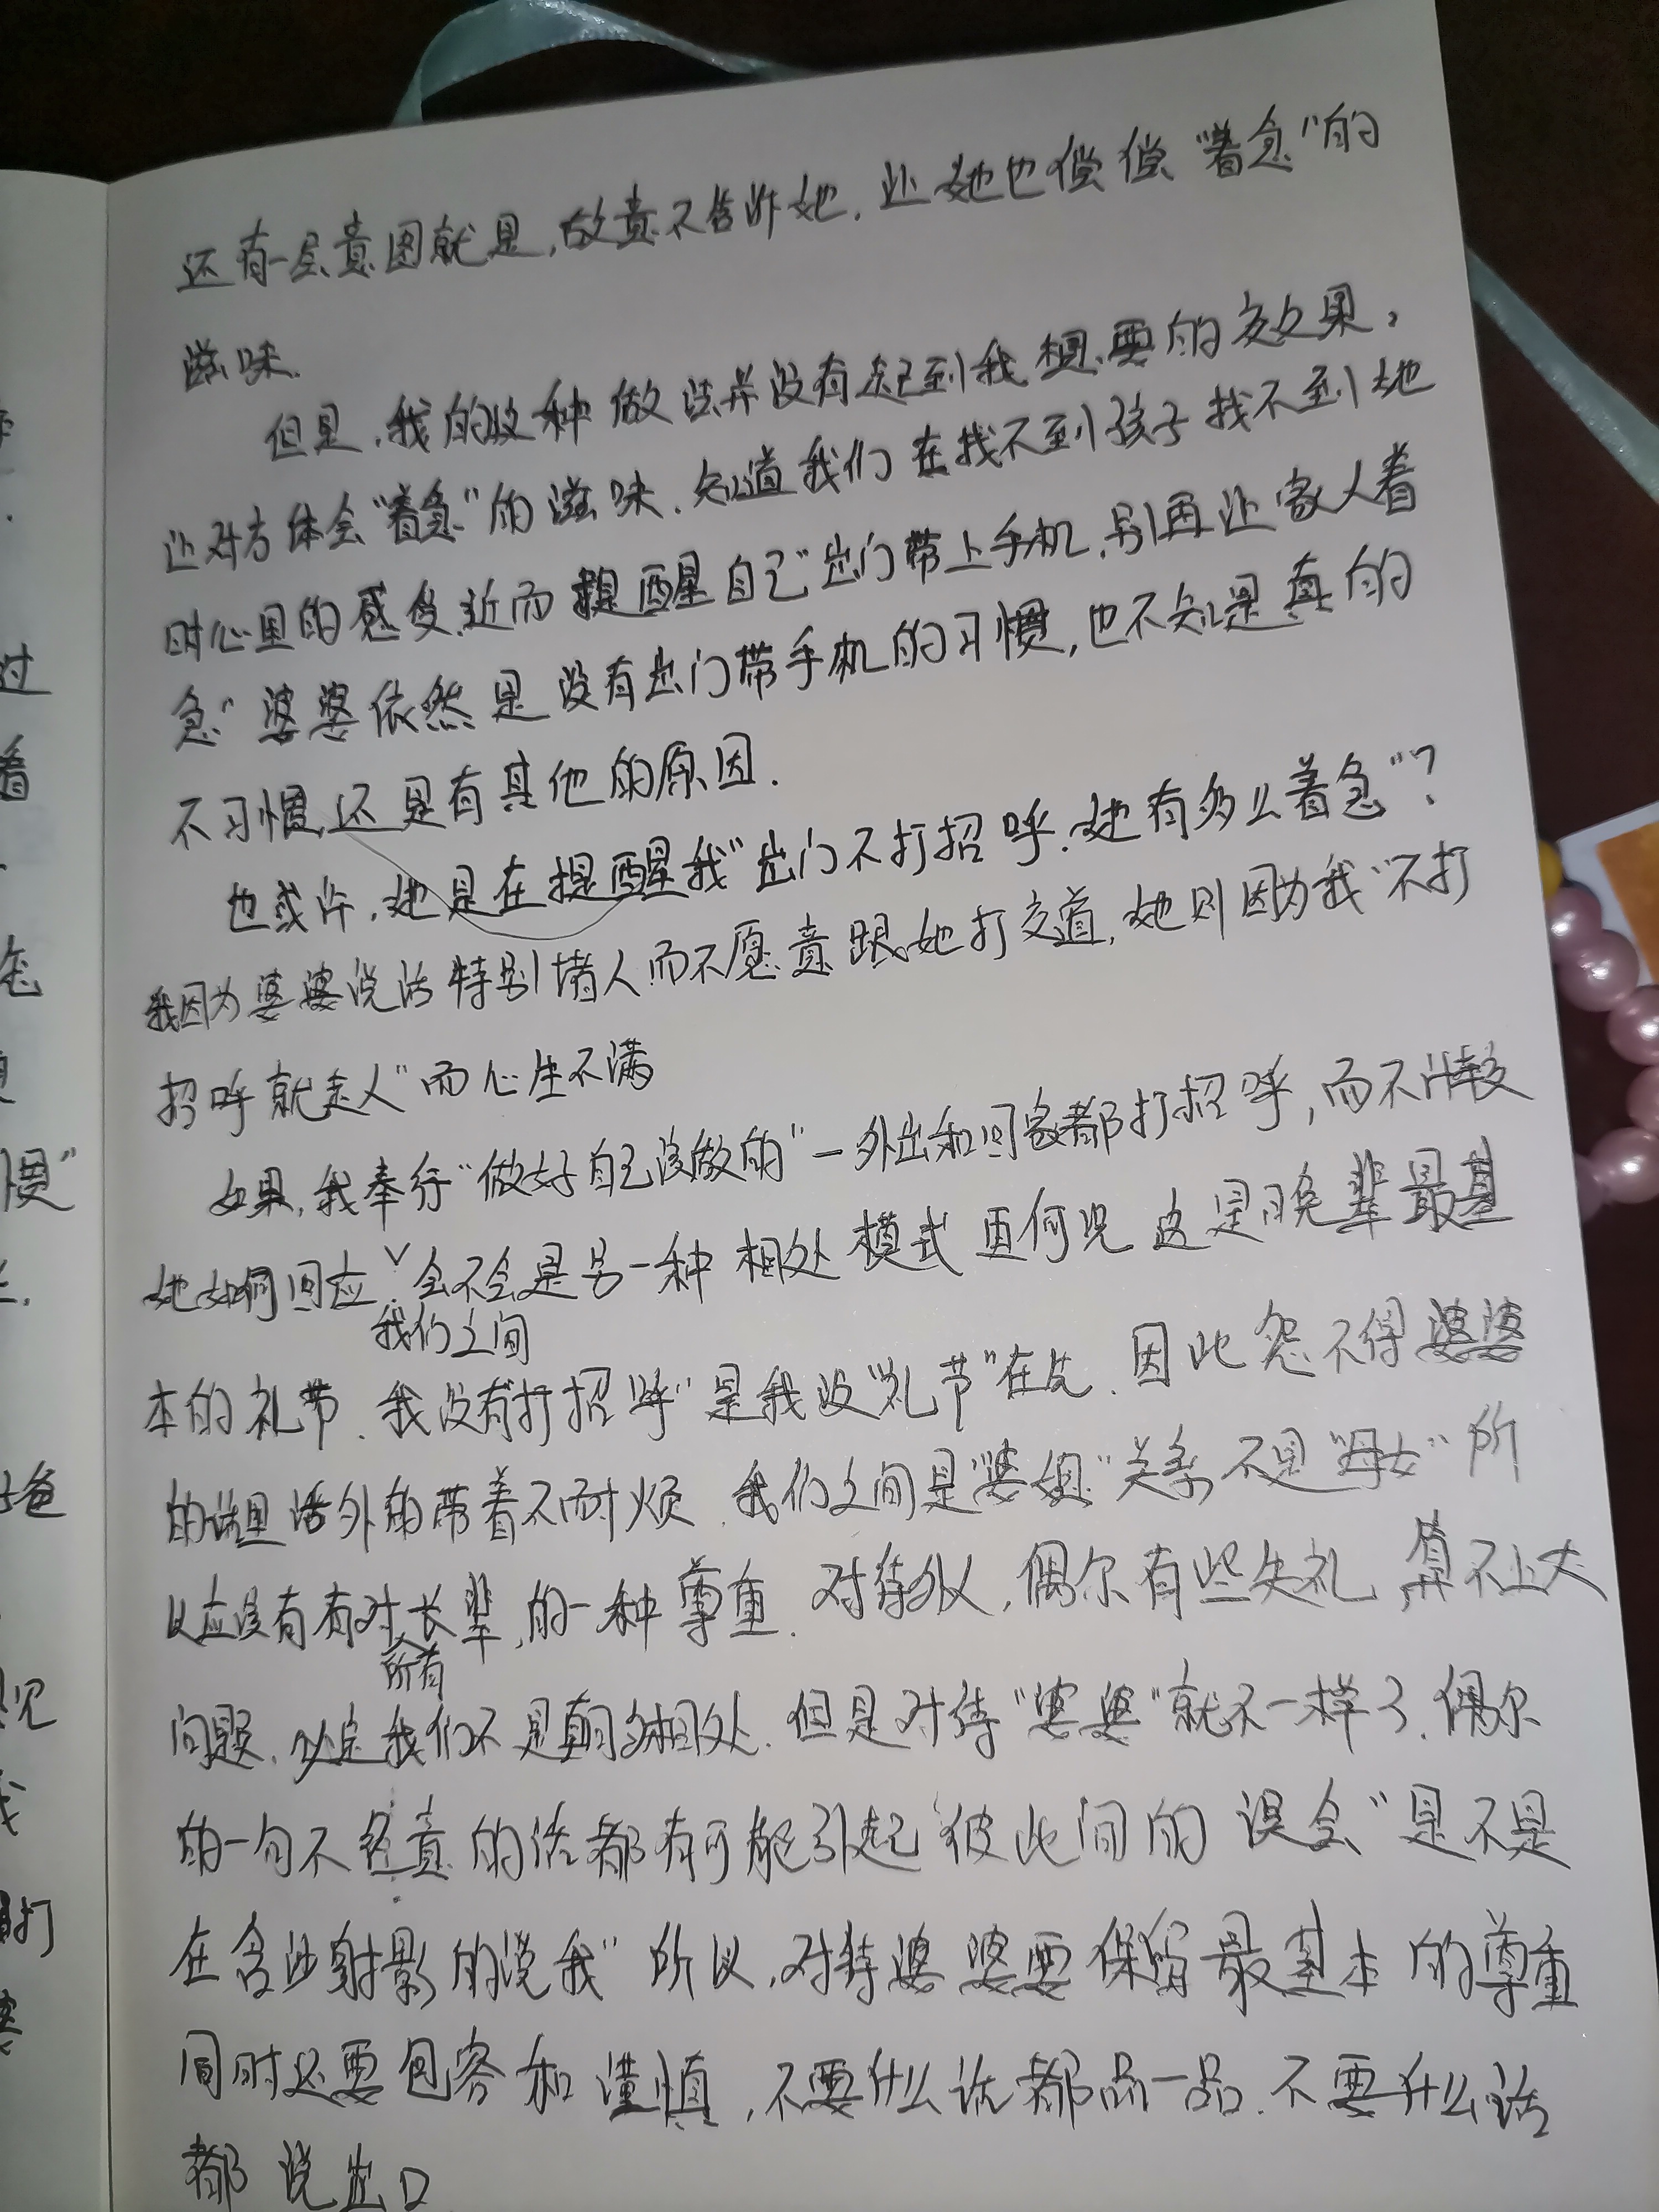 还有一层意图就是,故意不告诉她.让她也偿偿"着急"的
滋味.
但是,我的这种做法并没有起到我想要的效果,
让对方体会"着急"的滋味.知道我们在找不到孩子找不到她
时心里的感受.近而提醒自己"出门带上手机,别再让家人着
急"婆婆依然是没有出门带手机的习惯,也不知是真的
不习惯,还是有其他的原因.
也或许,她是在提醒我"出门不打招呼,她有多么着急"?
我因为婆婆说话特别堵人而不愿意跟她打交道,她则因为我"不打
招呼就走人"而心生不满
如果,我奉行"做好自己该做的"一外出和回家都打招呼,而不计较
她如何回应.会不会是另一种相处模式更何况这是晚辈最基
我们之间
本的礼节.我没有"打招呼"是我没"礼节"在先.因此怨不得婆婆
的话里话外的带着不耐烦.我们之间是"婆媳"关系不是"母女"所
以应该有有对长辈,的一种尊重.对待外人,偶尔有些失礼,算不上大
所有
问题,必定我们不是朝夕相处.但是对待"婆婆"就不一样了.偶尔
的一句不经意的话都有可能引起彼此间的误会"是不是
在含沙射影的说我"所以,对待婆婆要保留最基本的尊重
同时还要包容和谨慎,不要什么话都品一品.不要什么话
都说出口
过
着
惯"
爸
见
我
打
婆